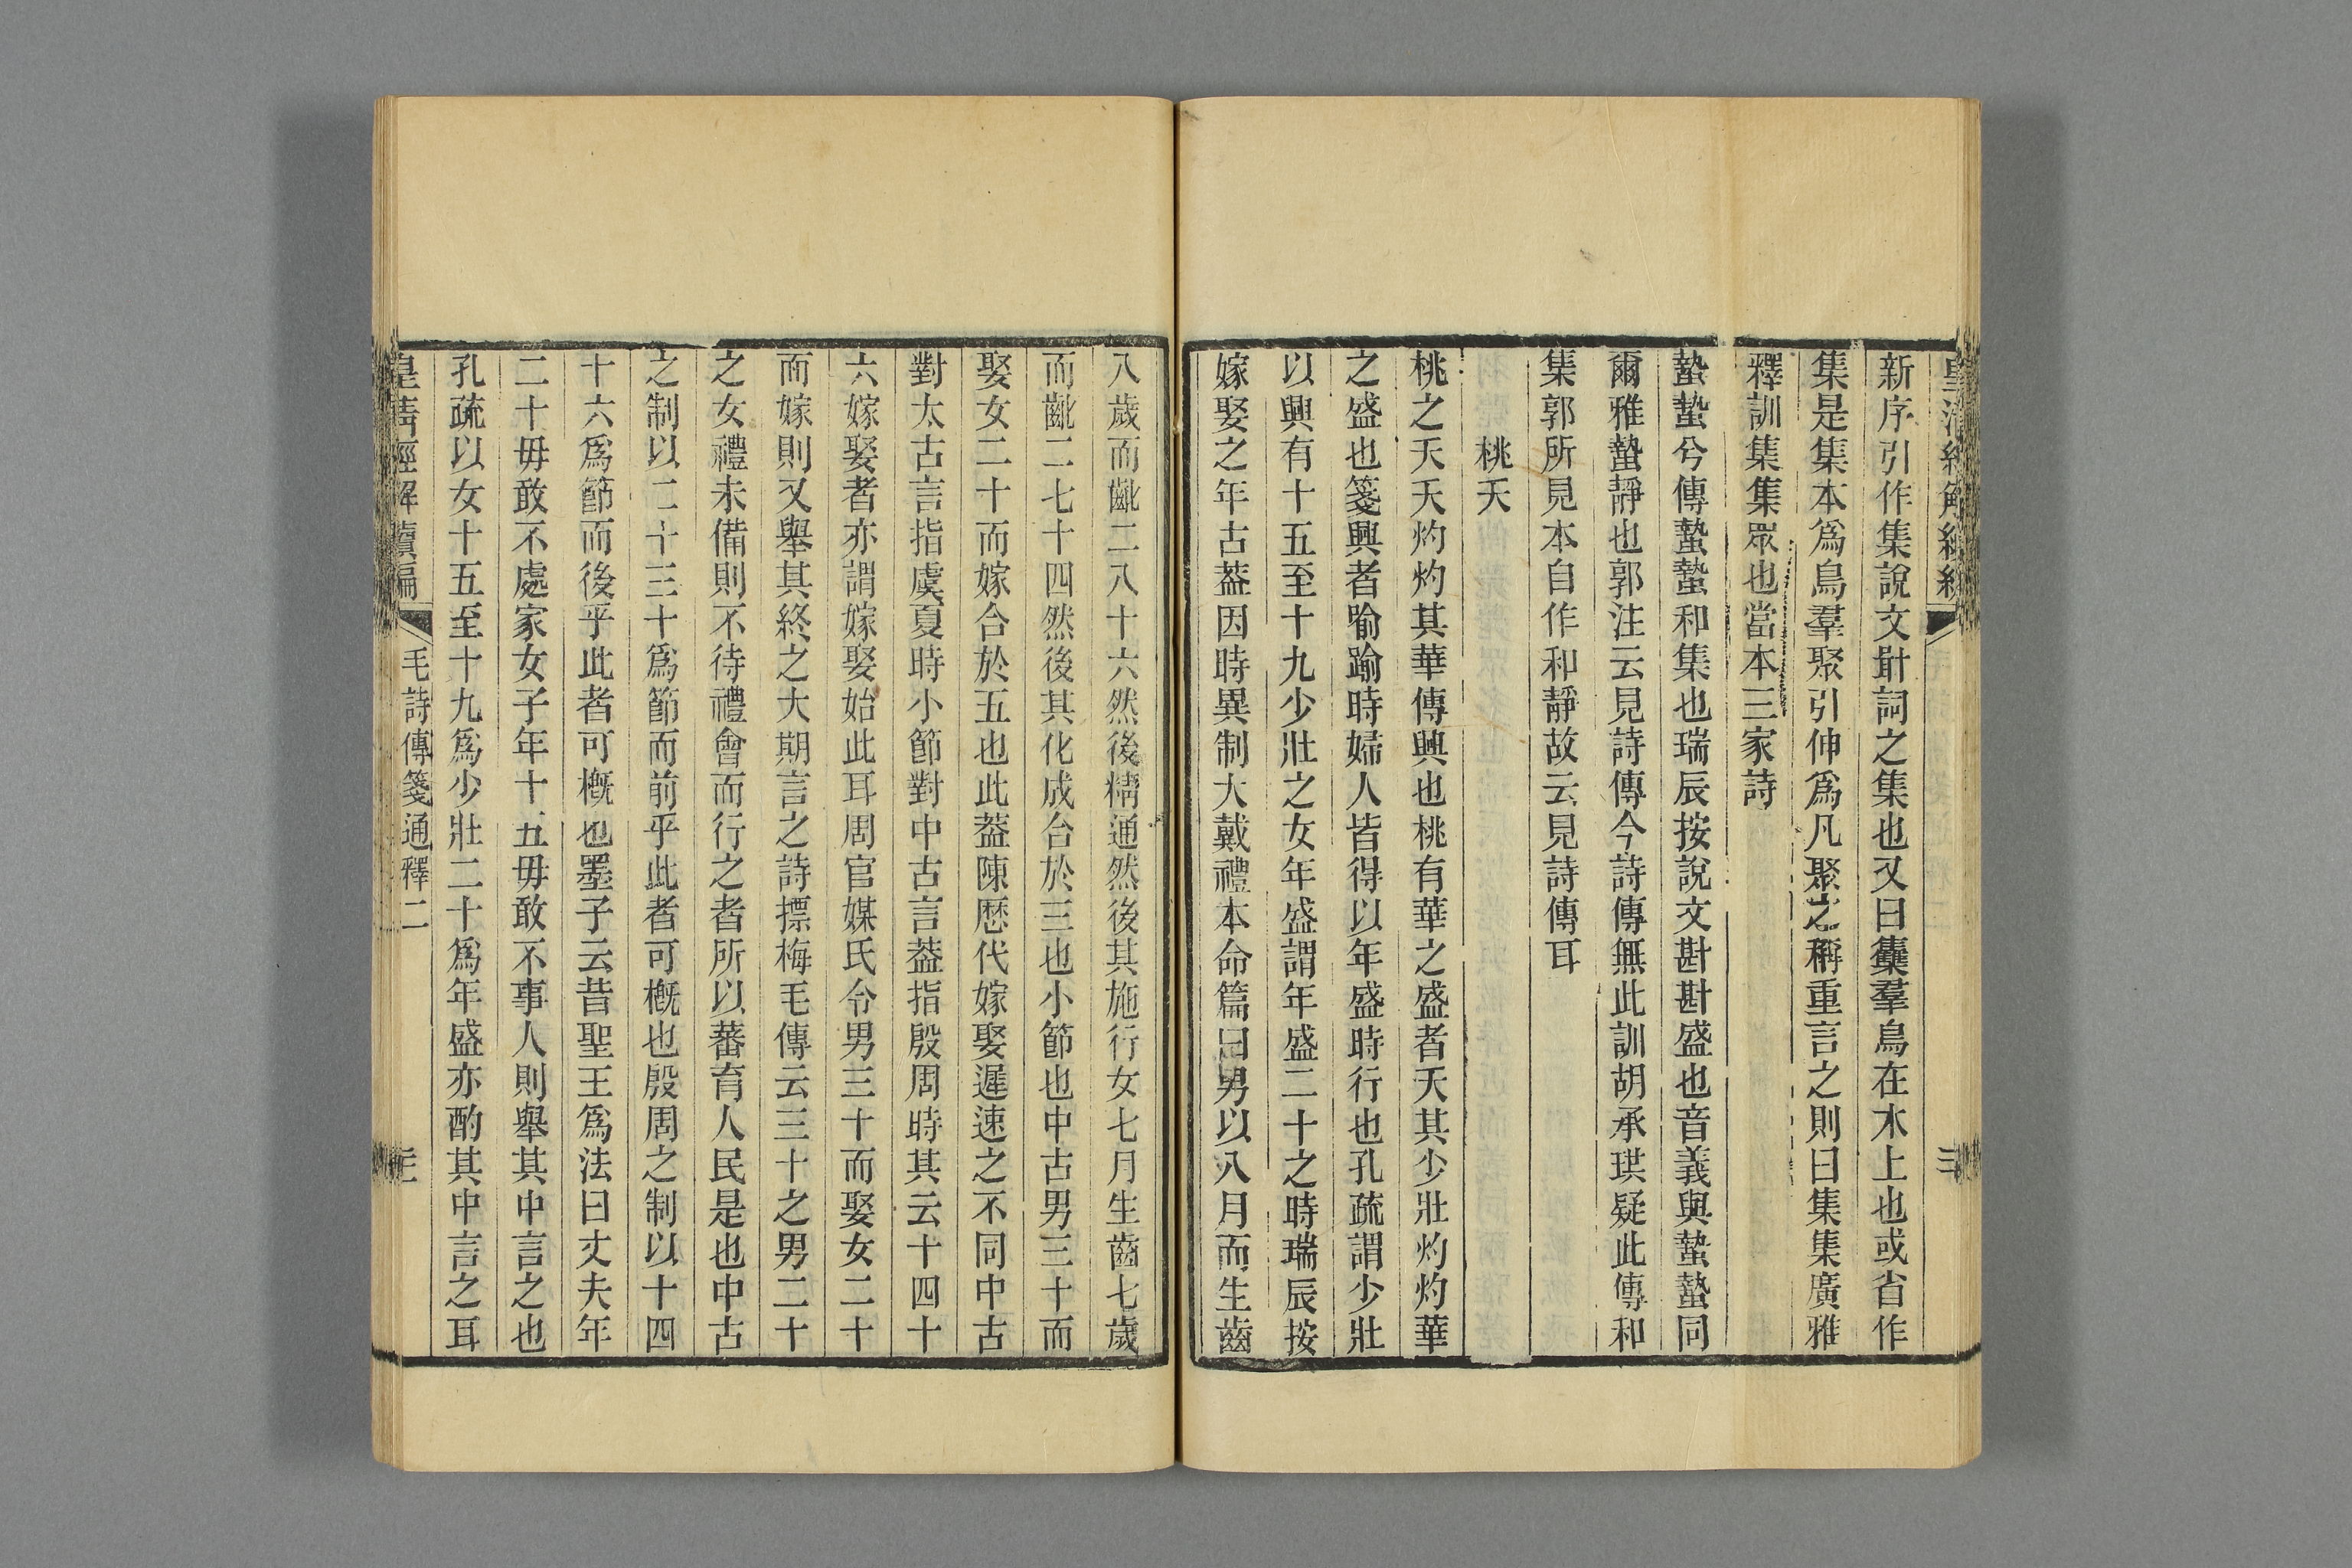 新序引作集說文㗬詞之集也又曰雧羣鳥在木上也或省作
集是集本爲鳥羣聚引伸爲凡聚之稱重言之則曰集集廣雅
釋訓集集眾也當本三家詩
蟄蟄兮傳蟄蟄和集也瑞辰按說文斟斟盛也音義與蟄蟄同
爾雅蟄靜也郭注云見詩傳今詩傳無此訓胡承珙疑此傳和
集郭所見本自作和靜故云見詩傳耳
桃夭
桃之夭夭灼灼其華傳興也桃有華之盛者夭其少壯灼灼華
之盛也箋興者喻踰時婦人皆得以年盛時行也孔疏謂少壯
以興有十五至十九少壯之女年盛謂年盛二十之時瑞辰按
嫁娶之年古葢因時異制大戴禮本命篇曰男以八月而生齒
八歲而齔二八十六然後精通然後其施行女七月生齒七歲
而齔二七十四然後其化成合於三也小節也中古男三十而
娶女二十而嫁合於五也此葢陳歷代嫁娶遲速之不同中古
對太古言指虞夏時小節對中古言葢指殷周時其云十四十
六嫁娶者亦謂嫁娶始此耳周官媒氏令男三十而娶女二十
而嫁則又舉其終之大期言之詩摽梅毛傳云三十之男二十
之女禮未備則不待禮會而行之者所以蕃育人民是也中古
之制以二十三十爲節而前乎此者可概也殷周之制以十四
十六爲節而後乎此者可概也墨子云昔聖王爲法曰丈夫年
二十毋敢不處家女子年十五毋敢不事人則舉其中言之也
孔疏以女十五至十九爲少壯二十爲年盛亦酌其中言之耳
皇清經解續編
毛詩傳箋通釋二